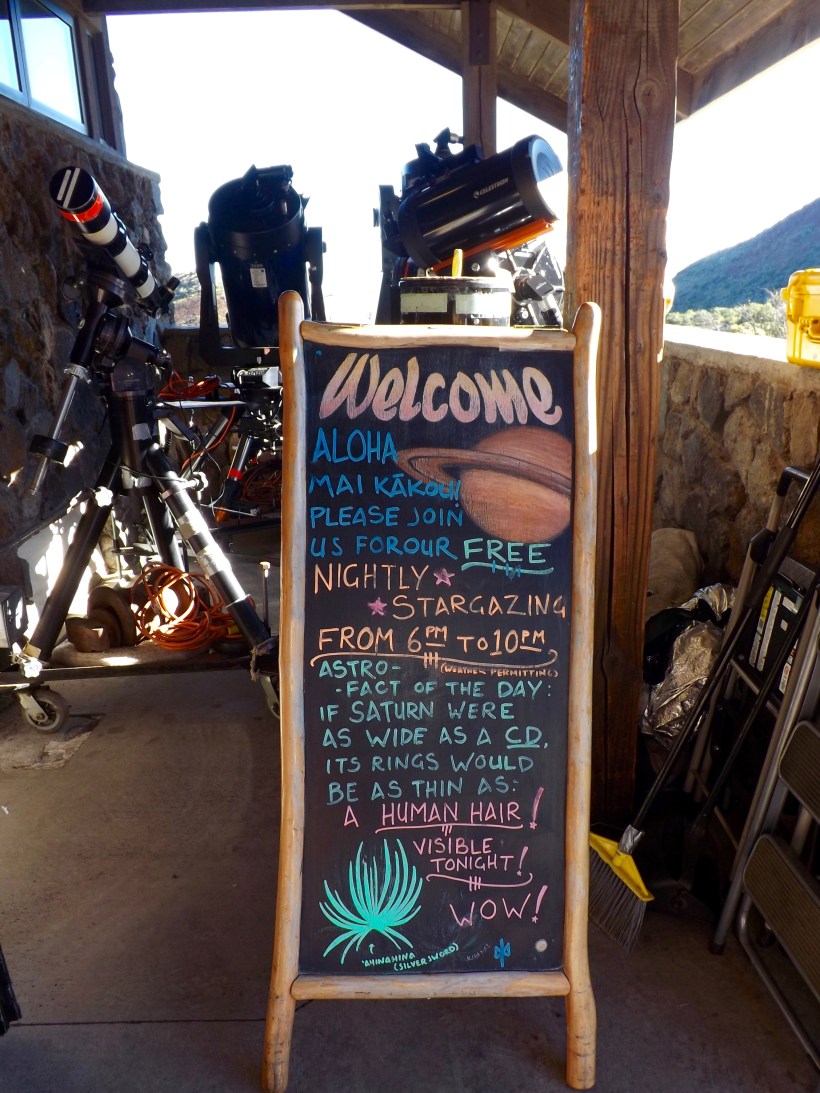 CELESTRON
Welcome
ALOHA
MAI KĀKOU!
PLEASE JOIN
US FOROUR FREE
NIGHTLY
STARGAZING
FROM 6PM TO 10PM
(WEATHER PERMITTING)
ASTRO-
-FACT OF THE DAY:
IF SATURN WERE
AS WIDE AS A CD,
ITS RINGS WOULD
BE AS THIN AS:
A HUMAN HAIR!
VISIBLE
TONIGHT!
WOW!
'AHINAHINA
(SILVERSWORD)